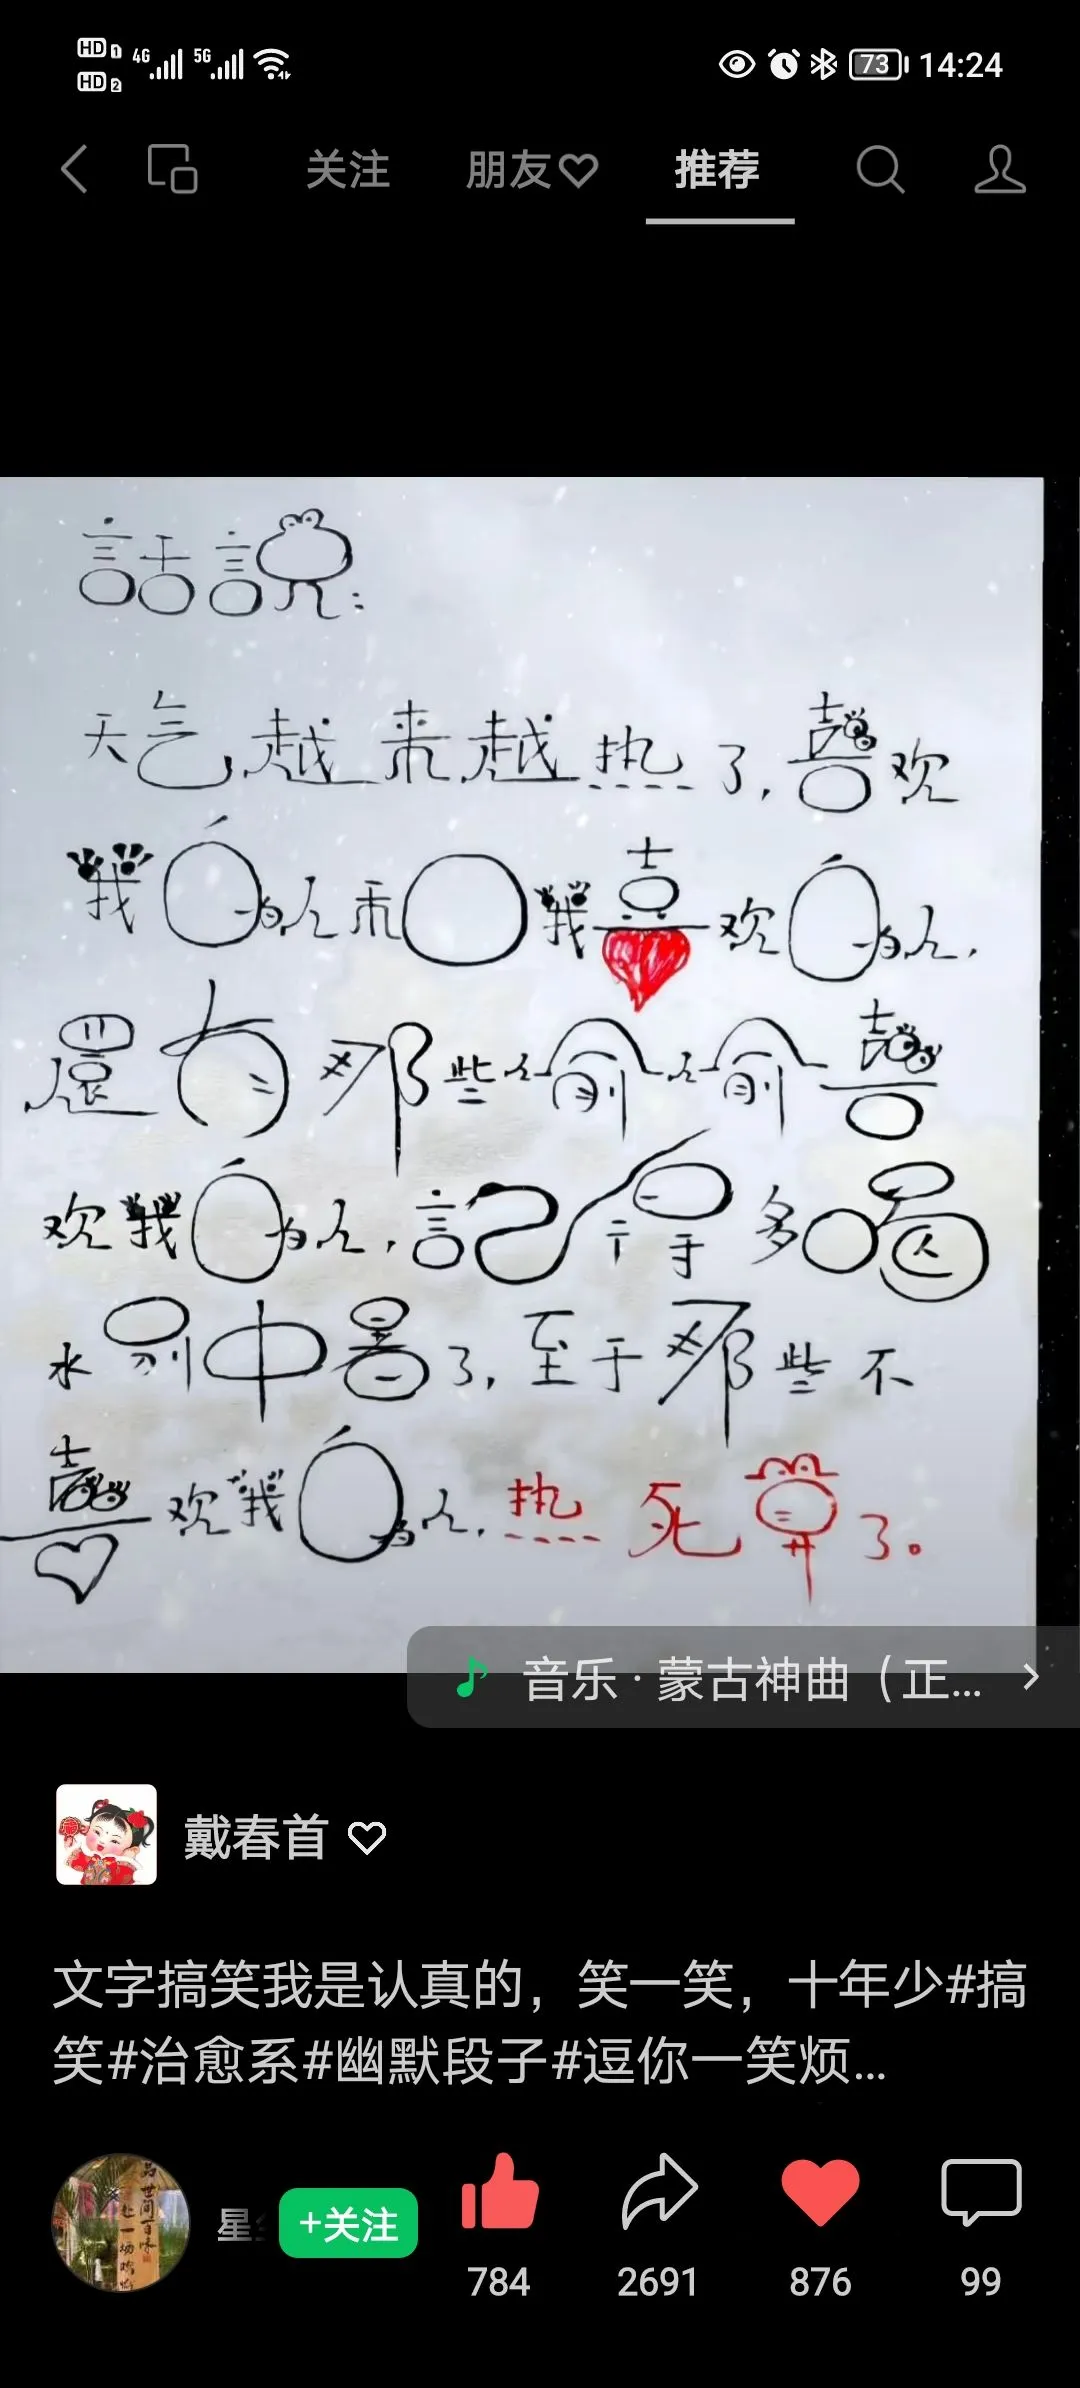 HD 1 4G 5G 73 14:24
HD 2
关注 朋友♡ 推荐
話説：
天气越来越热了，喜欢
我的人和我喜欢的人，
還有那些偷偷喜
欢我的人，記得多喝
水别中暑了，至于那些不
喜欢我的人，热死算了。
音乐·蒙古神曲（正...
戴春首♡
文字搞笑我是认真的，笑一笑，十年少#搞
笑#治愈系#幽默段子#逗你一笑烦...
星 +关注
784 2691 876 99